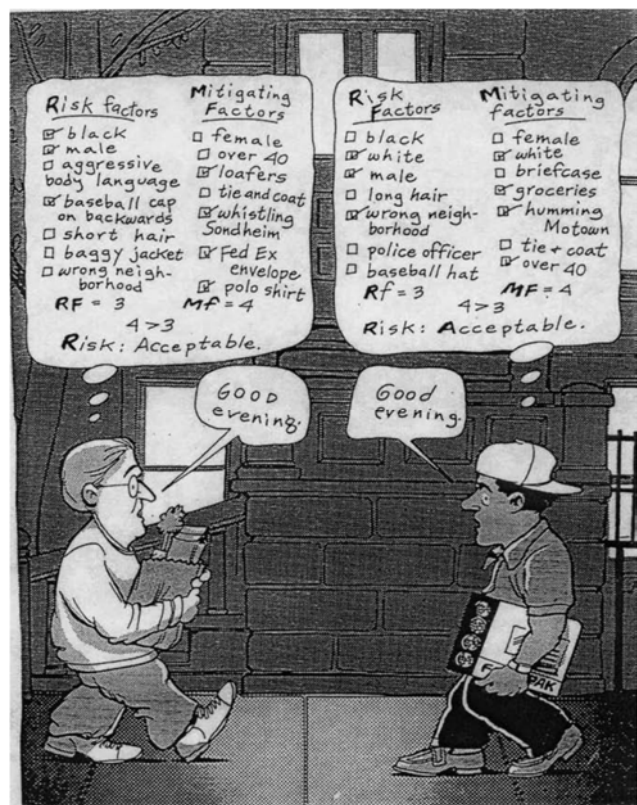 Risk factors
black
male
aggressive
body language
baseball cap
on backwards
short hair
baggy jacket
wrong neigh-
borhood
RF = 3
Mitigating
Factors
female
over 40
loafers
tie and coat
whistling
Sondheim
Fed Ex
envelope
polo shirt
Mf = 4
4 > 3
Risk: Acceptable.
Risk
Factors
black
white
male
long hair
wrong neigh-
borhood
police officer
baseball hat
Rf = 3
Mitigating
factors
female
white
briefcase
groceries
humming
Motown
tie + coat
over 40
MF = 4
4 > 3
Risk: Acceptable.
GOOD
evening.
Good
evening.
PAK